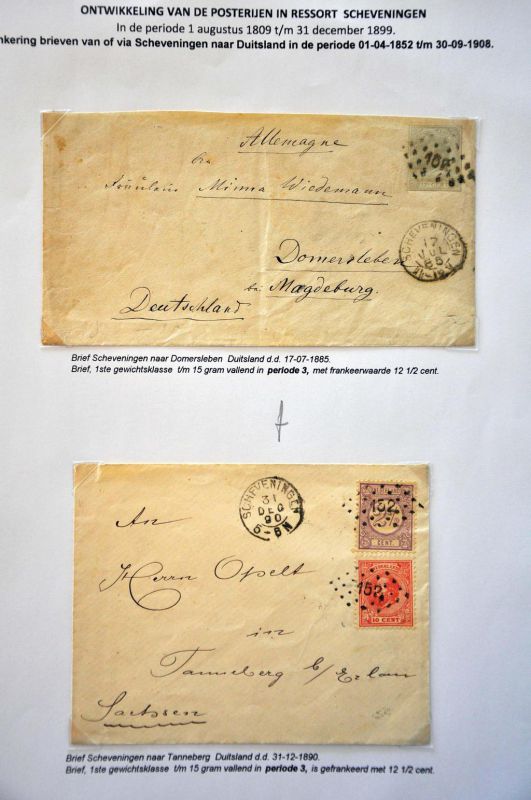 ONTWIKKELING VAN DE POSTERIJEN IN RESSORT SCHEVENINGEN
In de periode 1 augustus 1809 t/m 31 december 1899.
nkering brieven van of via Scheveningen naar Duitsland in de periode 01-04-1852 t/m 30-09-1908.
Allemagne
Fräulein Minna Wiedemann
Domersleben
bei Magdeburg.
Deutschland
SCHEVENINGEN
17
JUL
85
Brief Scheveningen naar Domersleben Duitsland d.d. 17-07-1885.
Brief, 1ste gewichtsklasse t/m 15 gram vallend in periode 3, met frankeerwaarde 12 1/2 cent.
SCHEVENINGEN
31
DEC
90
5-6N
152
CENT.
152
10 CENT
An
Herrn Opelt
in
Tanneberg
Sachsen
Brief Scheveningen naar Tanneberg Duitsland d.d. 31-12-1890.
Brief, 1ste gewichtsklasse t/m 15 gram vallend in periode 3, is gefrankeerd met 12 1/2 cent.